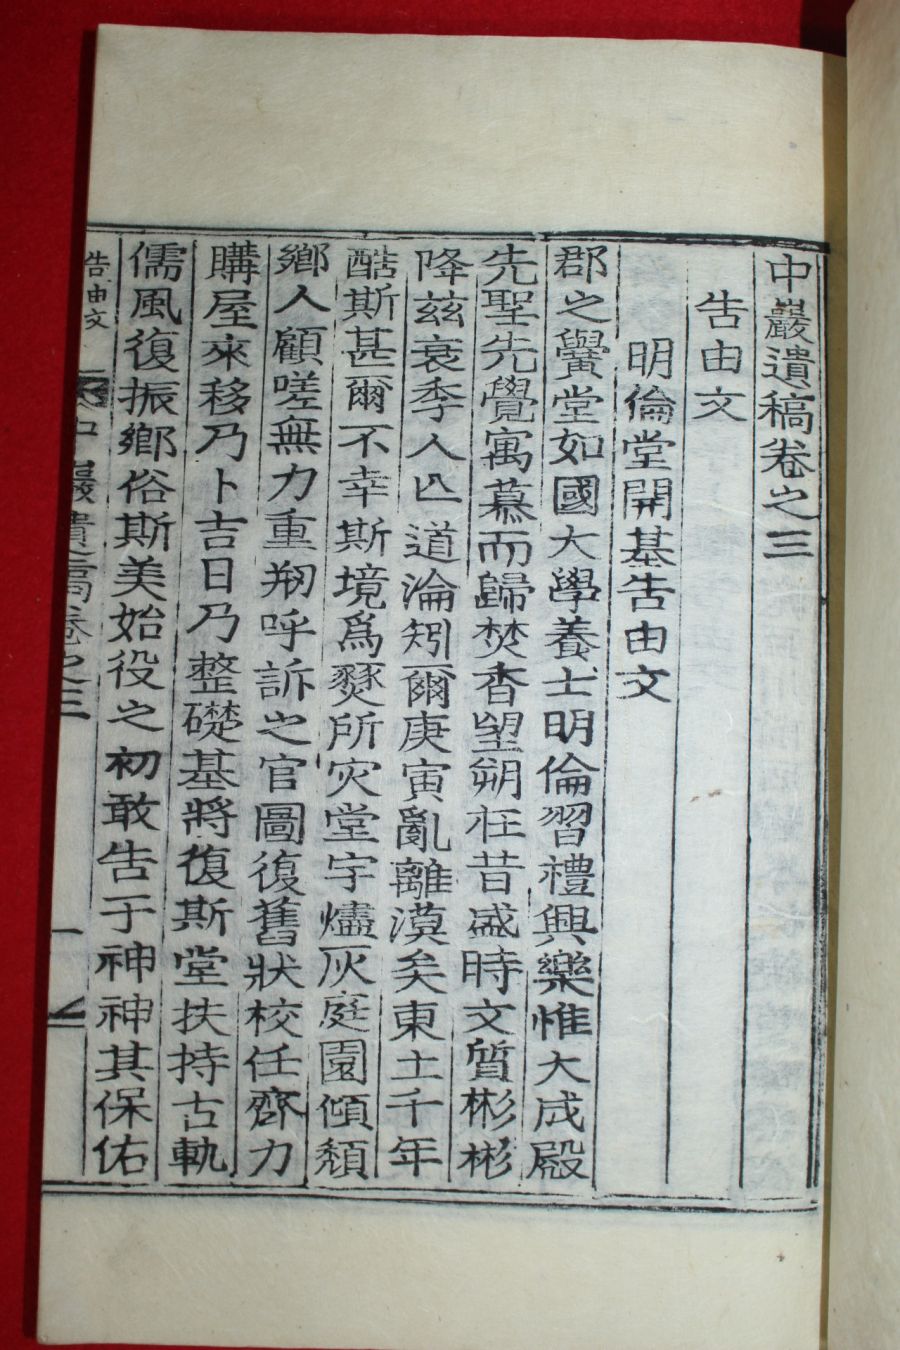 中巖遺稿卷之三
告由文
明倫堂開基告由文
郡之黌堂如國大學養士明倫習禮興樂惟大成殿
先聖先覺寓慕而歸焚香望朔在昔盛時文質彬彬
降茲衰季人亾道淪矧爾庚寅亂離漠矣東土千年
酷斯甚爾不幸斯境爲燹所灾堂宇燼灰庭園傾頹
鄉人顧嗟無力重刱呼訴之官圖復舊狀校任齊力
購屋來移乃卜吉日乃整礎基將復斯堂扶持古軌
儒風復振鄉俗斯美始役之初敢告于神神其保佑
告由文 中巖遺稿卷之三 一